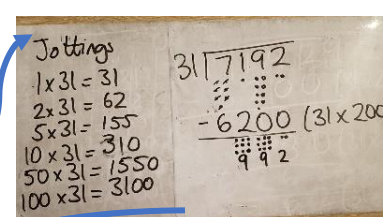 Jottings
1x31 = 31
2x31 = 62
5x31 = 155
10 x 31 = 310
50 x 31 = 1550
100 x31 = 3100
31 7192
- 6200 (31 x 200
9 9 2